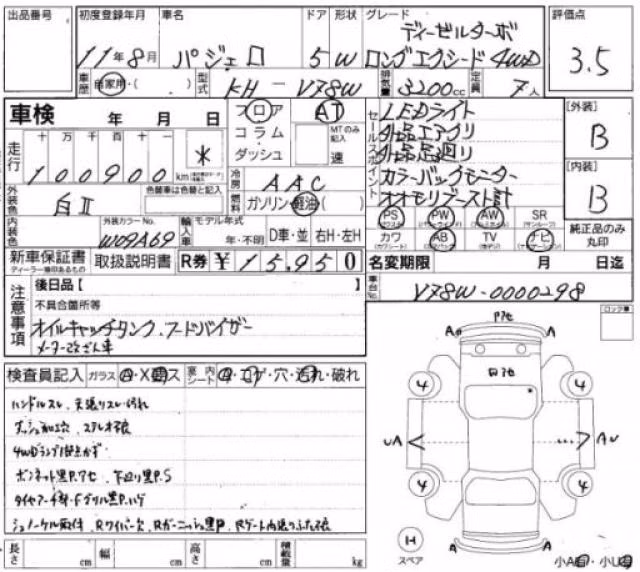 出品番号 初度登録年月 車名 ドア 形状 グレード 評価点
11年8月 パジェロ 5 W ディーゼルターボ
ロングエクシード 4WD 3.5
車歴 自家用・( ) 型式 KH-V78W 排気量 3200cc 定員 7人
車検 年 月 日
フロア AT
コラム
ダッシュ
MTのみ記入
速
走行 十 万 千 百 十 一
100900 km *
冷房 AAC
外装色 白II 色替車は色替と記入
燃料 ガソリン・軽油( )
内装色 外装カラーNo. W09A69
輸入車 モデル年式 年・不明 D車・並 右H・左H
新車保証書 取扱説明書 R券 ¥15,950
ディーラー押印あるもの
セールスポイント
LEDライト
社外品エアクリ
社外品足回り
カラーバックモニター
オオモリブースト計
PS PW AW SR
カワ AB TV ナビ
[外装] B
[内装] B
純正品のみ丸印
名変期限 月 日迄
車台No. V78W-0000298
注意事項
後日品【 】
不具合箇所等
オイルキャッチタンク・フードバイザー
メーター改ざん車
検査員記入 ガラス A・X・ス 室内シート ・コゲ・穴・汚れ・破れ
ハンドルスレ、天張リスレ・汚れ
ダッシュ加工穴 ステレオ不良
4WDランプ点かず
ボンネット黒P.アセ、下回り黒P.S
シュノーケル取付
長さ cm 幅 cm 高さ cm 積載量 kg
ロック車
Pアセ
A A
4 4
4 4
A A
スペア
小A・小U